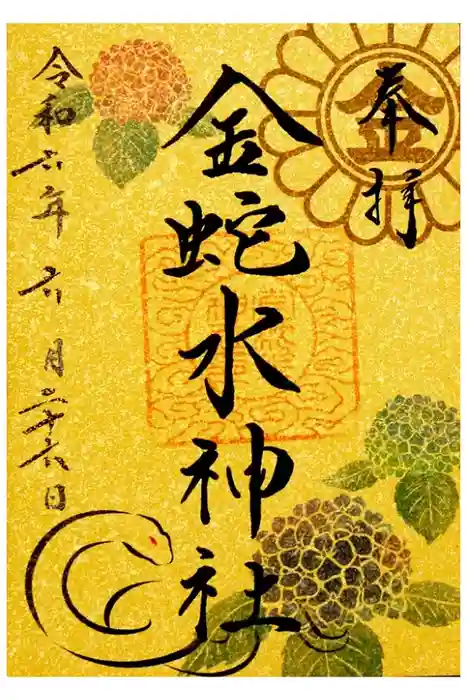 奉拝
金
金蛇水神社
令和六年六月二十六日